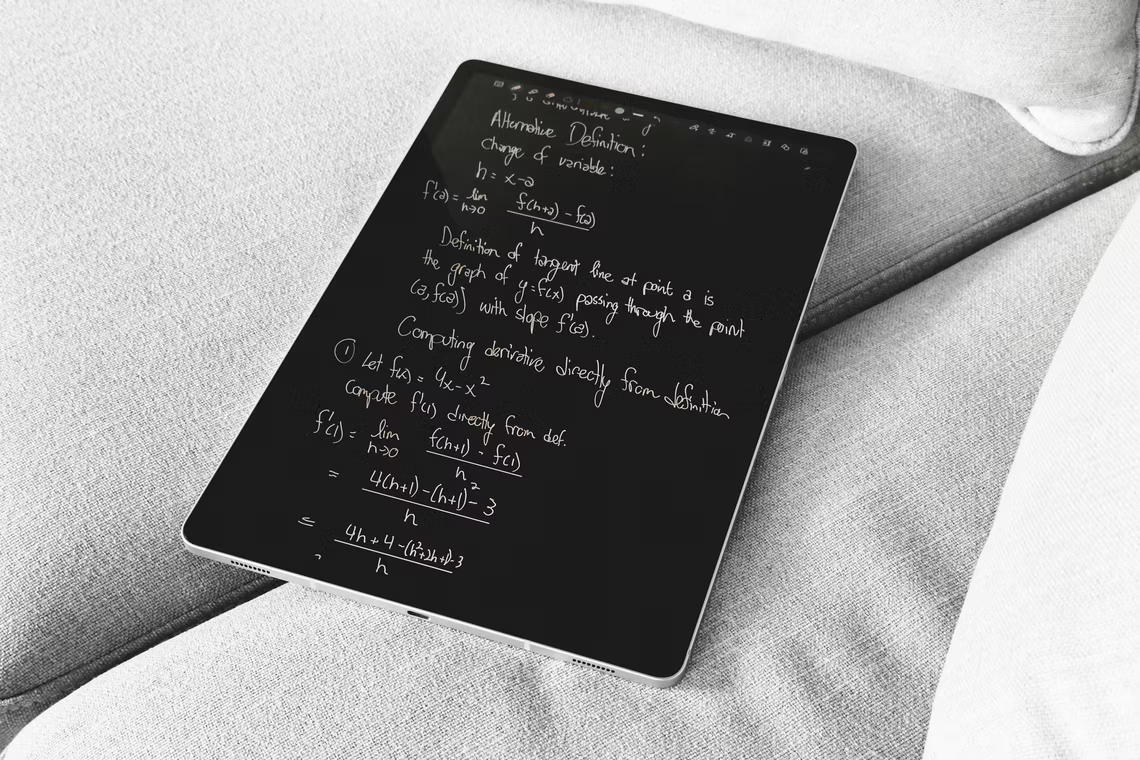 Alternative Definition:
change of variable:
h = x-a
f'(a) = lim h→0 f(h+a) - f(a) / h
Definition of tangent line at point a is
the graph of y=f(x) passing through the point
(a, f(a)) with slope f'(a).
Computing derivative directly from definition
① Let f(x) = 4x-x²
Compute f'(1) directly from def.
f'(1) = lim h→0 f(h+1) - f(1) / h
= 4(h+1)-(h+1)²-3 / h
= 4h+4-(h²+2h+1)-3 / h